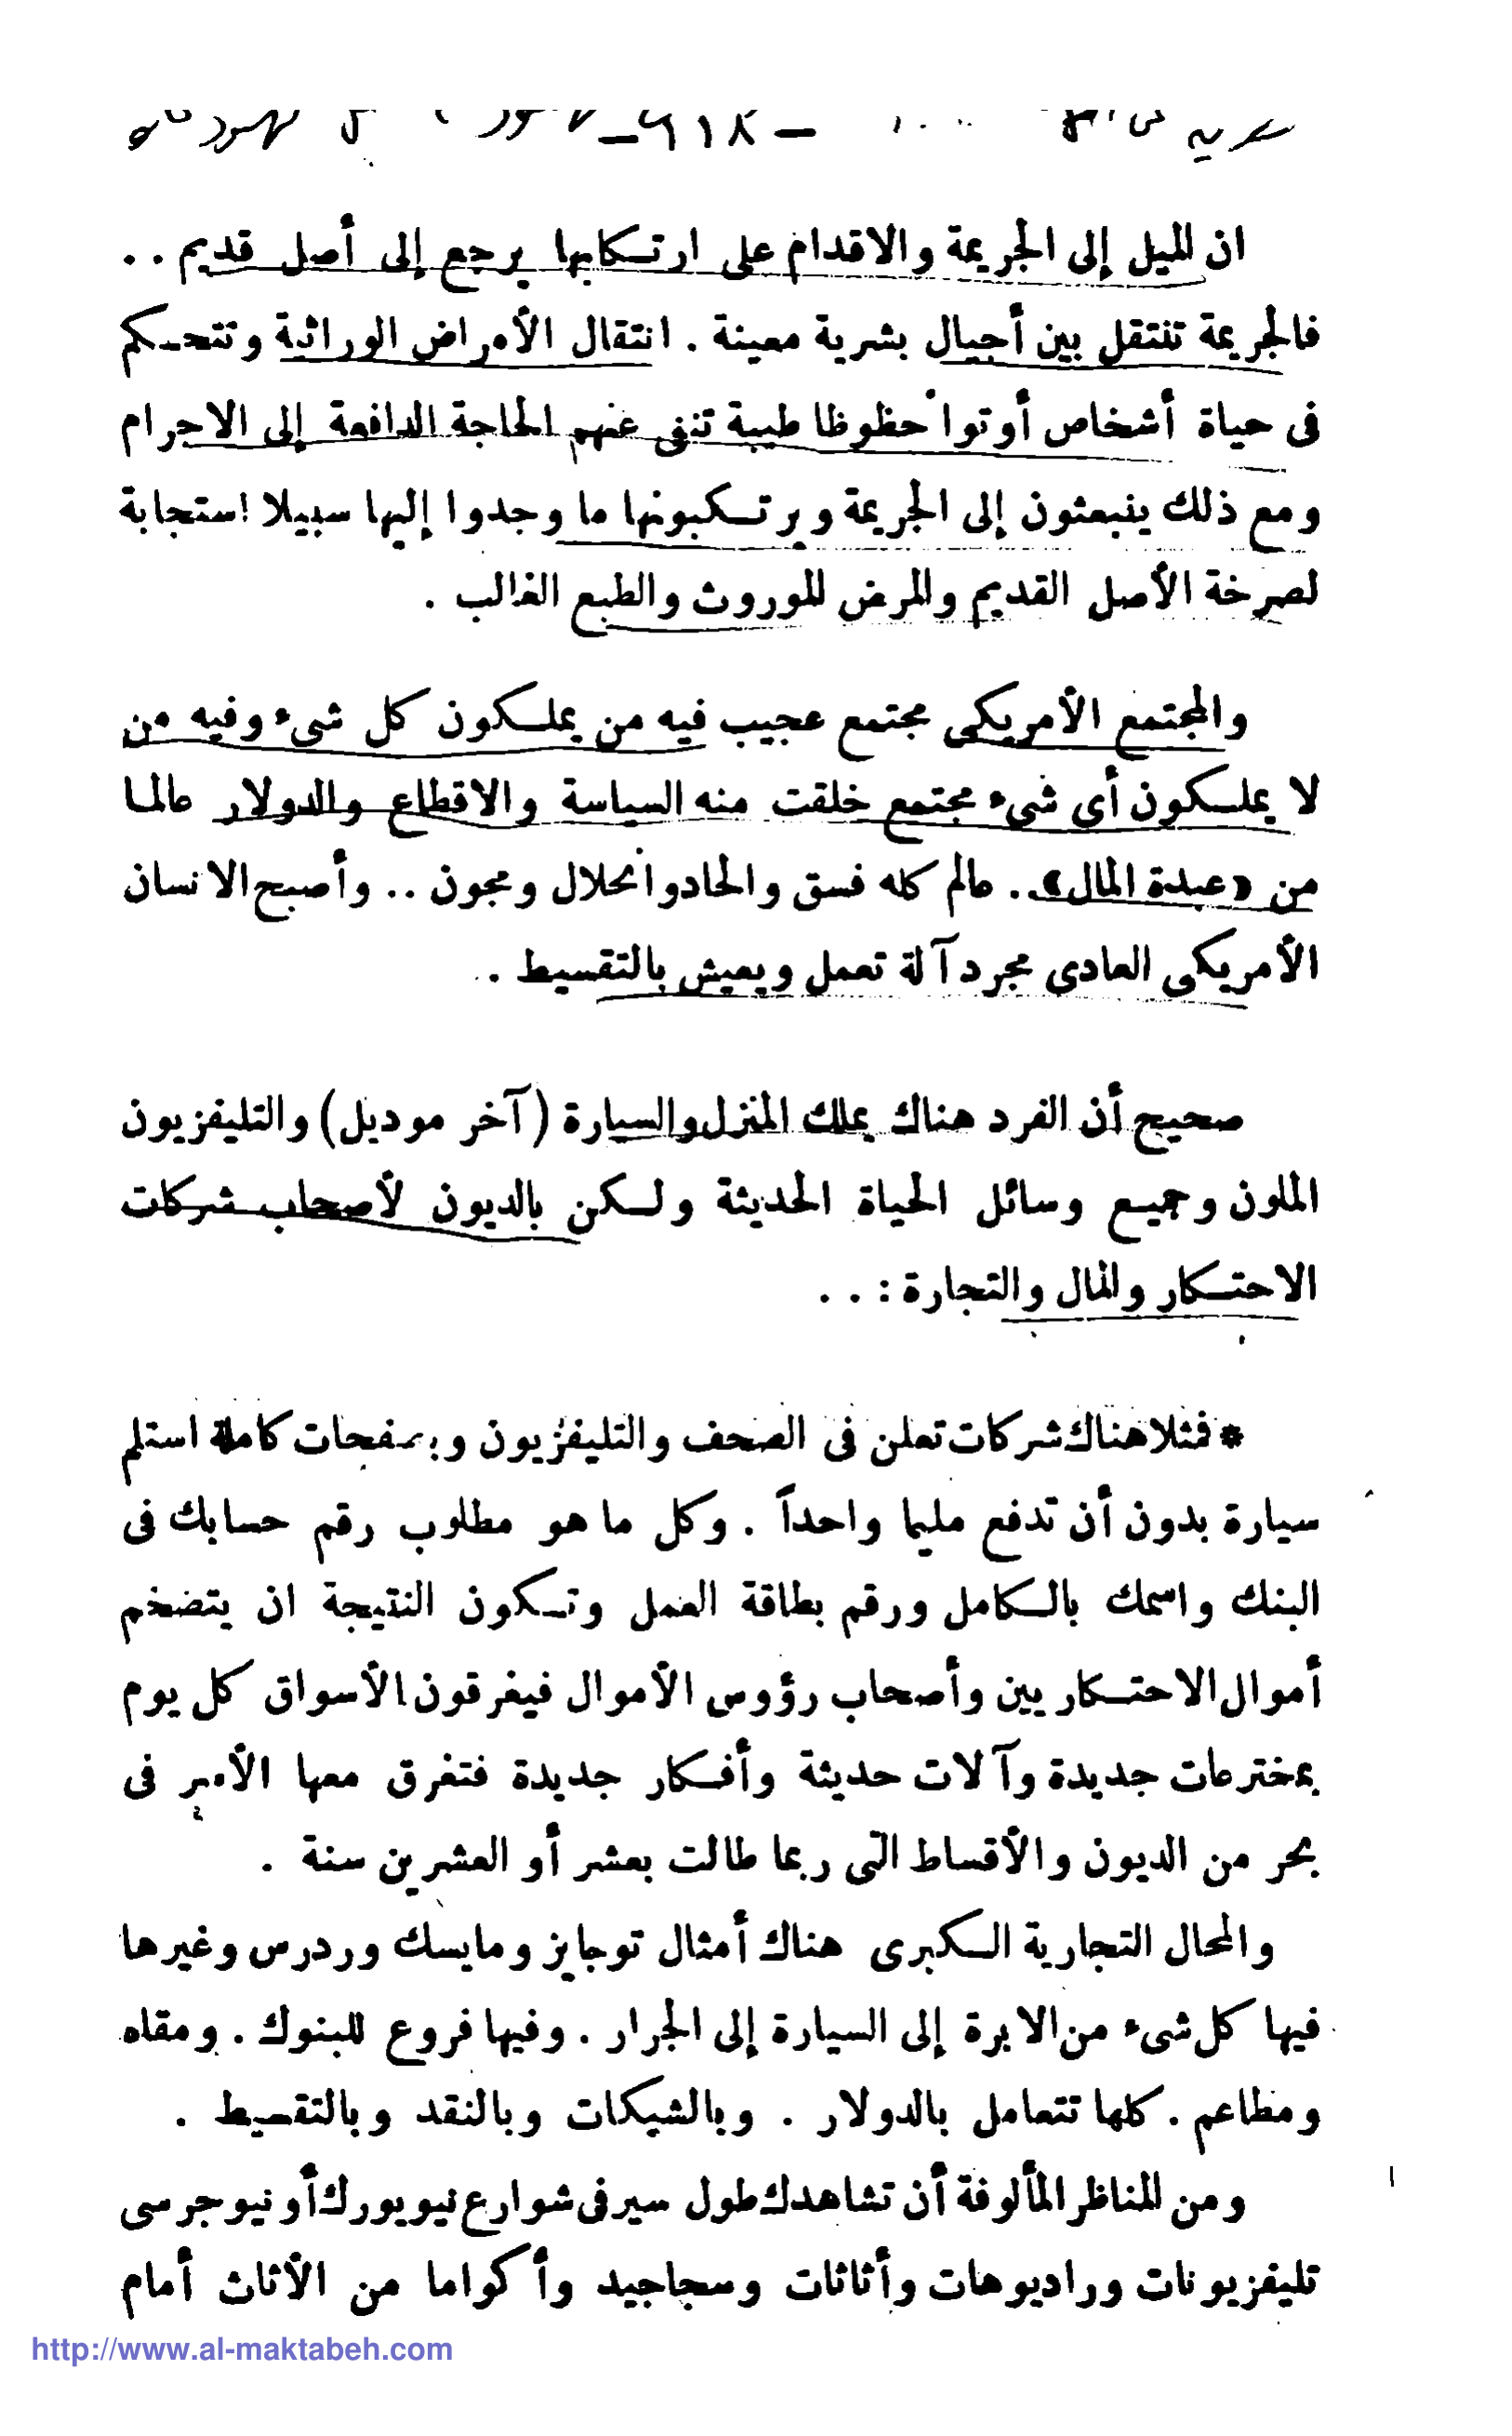 — ٢١٨ —
ان الميل إلى الجريمة والاقدام على ارتكابها يرجع إلى أصل قديم . .
فالجريمة تنتقل بين أجيال بشرية معينة . انتقال الأمراض الوراثية وتتحكم
فى حياة أشخاص أوتوا حظوظا طيبة تنفى عنهم الحاجة الدافعة إلى الاجرام
ومع ذلك ينبعثون إلى الجريمة ويرتكبونها ما وجدوا إليها سبيلا استجابة
لصرخة الأصل القديم والمرض الموروث والطبع الغالب .
والمجتمع الأمريكى مجتمع عجيب فيه من يملكون كل شىء وفيه من
لا يملكون أى شىء مجتمع خلقت منه السياسة والاقطاع والدولار عالما
من «عبدة المال» . . عالم كله فسق والحاد وانحلال ومجون . . وأصبح الانسان
الأمريكى العادى مجرد آلة تعمل ويعيش بالتقسيط .
صحيح أن الفرد هناك يملك المنزل والسيارة (آخر موديل) والتليفزيون
الملون وجميع وسائل الحياة الحديثة ولكن بالديون لأصحاب شركات
الاحتكار والمال والتجارة : . .
* فمثلا هناك شركات تعلن فى الصحف والتليفزيون وبصفحات كاملة استلم
سيارة بدون أن تدفع مليما واحداً . وكل ما هو مطلوب رقم حسابك فى
البنك واسمك بالكامل ورقم بطاقة العمل وتكون النتيجة ان يتضخم
أموال الاحتكاريين وأصحاب رؤوس الأموال فيغرقون الأسواق كل يوم
بمخترعات جديدة وآلات حديثة وأفكار جديدة فتغرق معها الأسر فى
بحر من الديون والأقساط التى ربما طالت بعشر أو العشرين سنة .
والمحال التجارية الكبرى هناك أمثال توجايز ومايسك وردرس وغيرها
فيها كل شىء من الابرة إلى السيارة إلى الجرار . وفيها فروع للبنوك . ومقاه
ومطاعم . كلها تتعامل بالدولار . وبالشيكات وبالنقد وبالتقسيط .
ومن المناظر المألوفة أن تشاهدك طول سير فى شوارع نيويورك أو نيوجرسى
تليفزيونات وراديوهات وأثاثات وسجاجيد وأكواما من الأثاث أمام
http://www.al-maktabeh.com